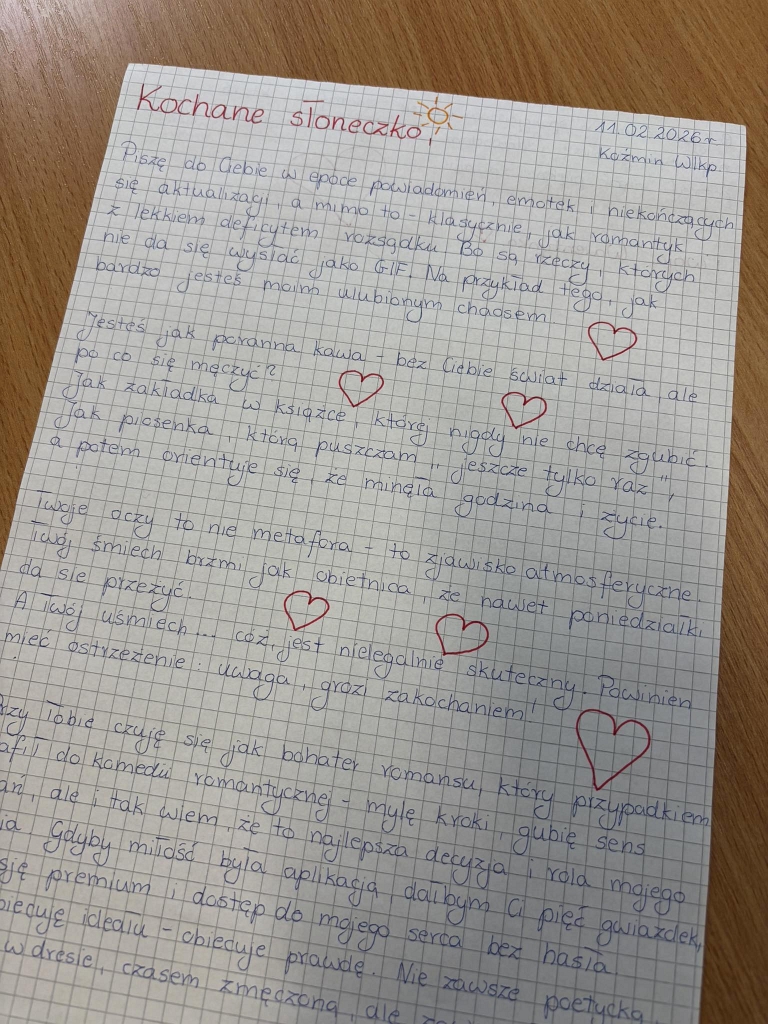 Kochane słoneczko,
11.02.2026r
Koźmin Wlkp.
Piszę do Ciebie w epoce powiadomień, emotek i niekończących
się aktualizacji, a mimo to - klasycznie, jak romantyk
z lekkiem deficytem rozsądku. Bo są rzeczy, których
nie da się wysłać jako GIF. Na przykład tego, jak
bardzo jesteś moim ulubionym chaosem
Jesteś jak poranna kawa - bez Ciebie świat działa, ale
po co się męczyć?
Jak zakładka w książce, której nigdy nie chcę zgubić.
Jak piosenka, którą puszczam „jeszcze tylko raz",
a potem orientuje się, że minęła godzina i życie.
Twoje oczy to nie metafora - to zjawisko atmosferyczne.
Twój śmiech brzmi jak obietnica, że nawet poniedziałki
da sie przeżyć.
A Twój uśmiech... cóż, jest nielegalnie skuteczny. Powinien
mieć ostrzeżenie: uwaga, grozi zakochaniem!
Przy Tobie czuję się jak bohater romansu, który przypadkiem
afił do komedii romantycznej - mylę kroki, gubię sens
ań, ale i tak wiem, że to najlepsza decyzja i rola mojego
ia. Gdyby miłość była aplikacją dałbym Ci pięć gwiazdek,
ję premium i dostęp do mojego serca bez hasła.
biecuję ideału - obiecuję prawdę. Nie zawsze poetycką,
w dresie, czasem zmęczoną, ale